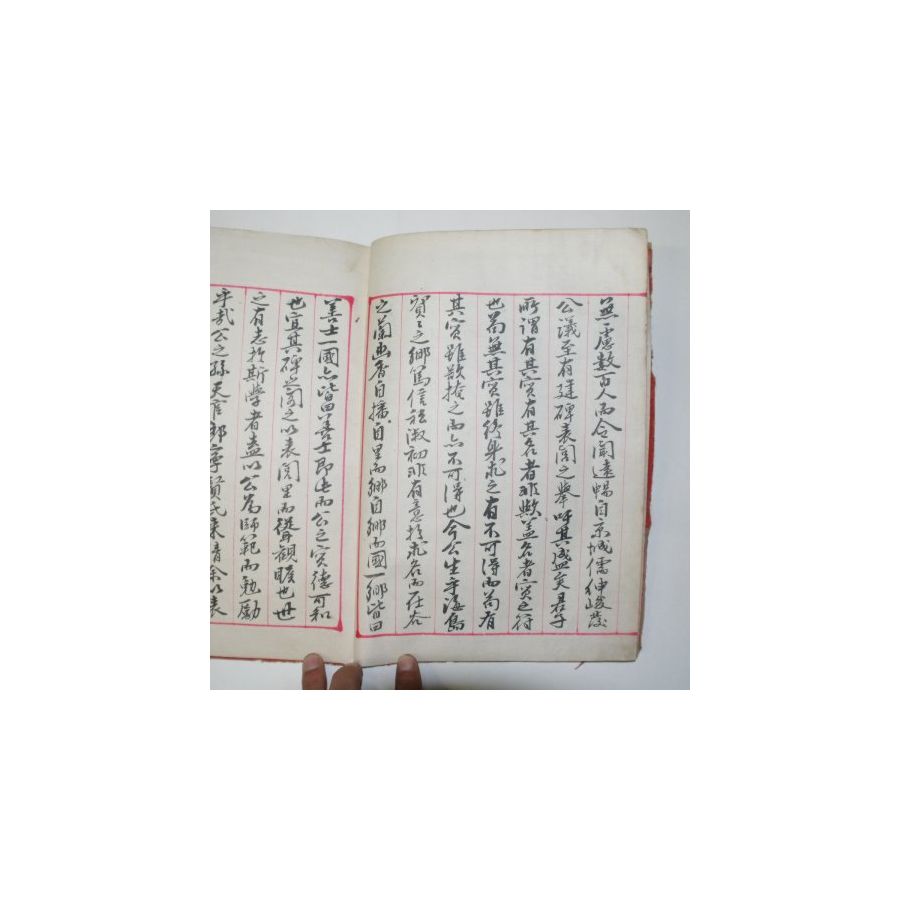 無慮數百人而令聞遠暢自京城儒紳峻發
公議至有建碑表閭之擧吁其盛矣君子
所謂有其實有其名者非歟盖名者實之符
也苟無其實雖衒而求之有不可得而苟有
其實雖欲掩之而亦不可得也今公生乎海島
之鄕篤信私淑初非有意於求名而在谷
之蘭幽香自播自里而鄕自鄕而國一鄕皆曰
善士一國亦皆曰善士即此而公之實德可知
也宜其碑之閭之以表閭里而聳觀瞻也世
之有志於斯學者盍以公爲師範而勉勵
乎哉公之孫天 氏來 余以表